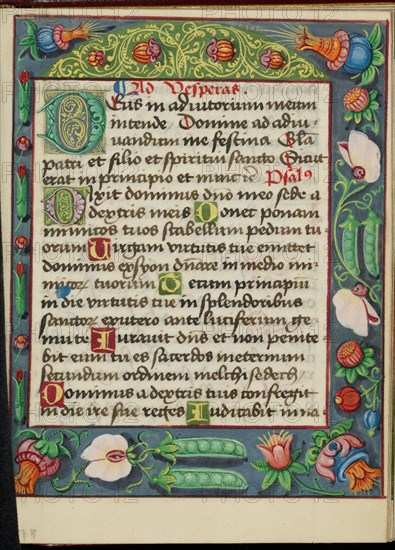 Ad Vesperas.
Deus in adiutorium meum
intende Domine ad adiu-
uandum me festina Gla
patri et filio et spiritui sancto Sicut
erat in principio et nunc Psal9
Dixit dominus dno meo sede a
dextris meis Donec ponam
inimicos tuos scabellum pedum tu
orum Uirgam virtutis tue emittet
dominus ex syon dnare in medio ini-
micor tuorum Tecum principiu
in die virtutis tue in splendoribus
sanctor ex utero ante luciferum ge-
nui te Iurauit dns et non penite
bit eum tu es sacerdos in eternum
secundum ordinem melchisedech
Dominus a dextris tuis confregit
in die ire sue reges Iudicabit in na-
PHOTO12
78